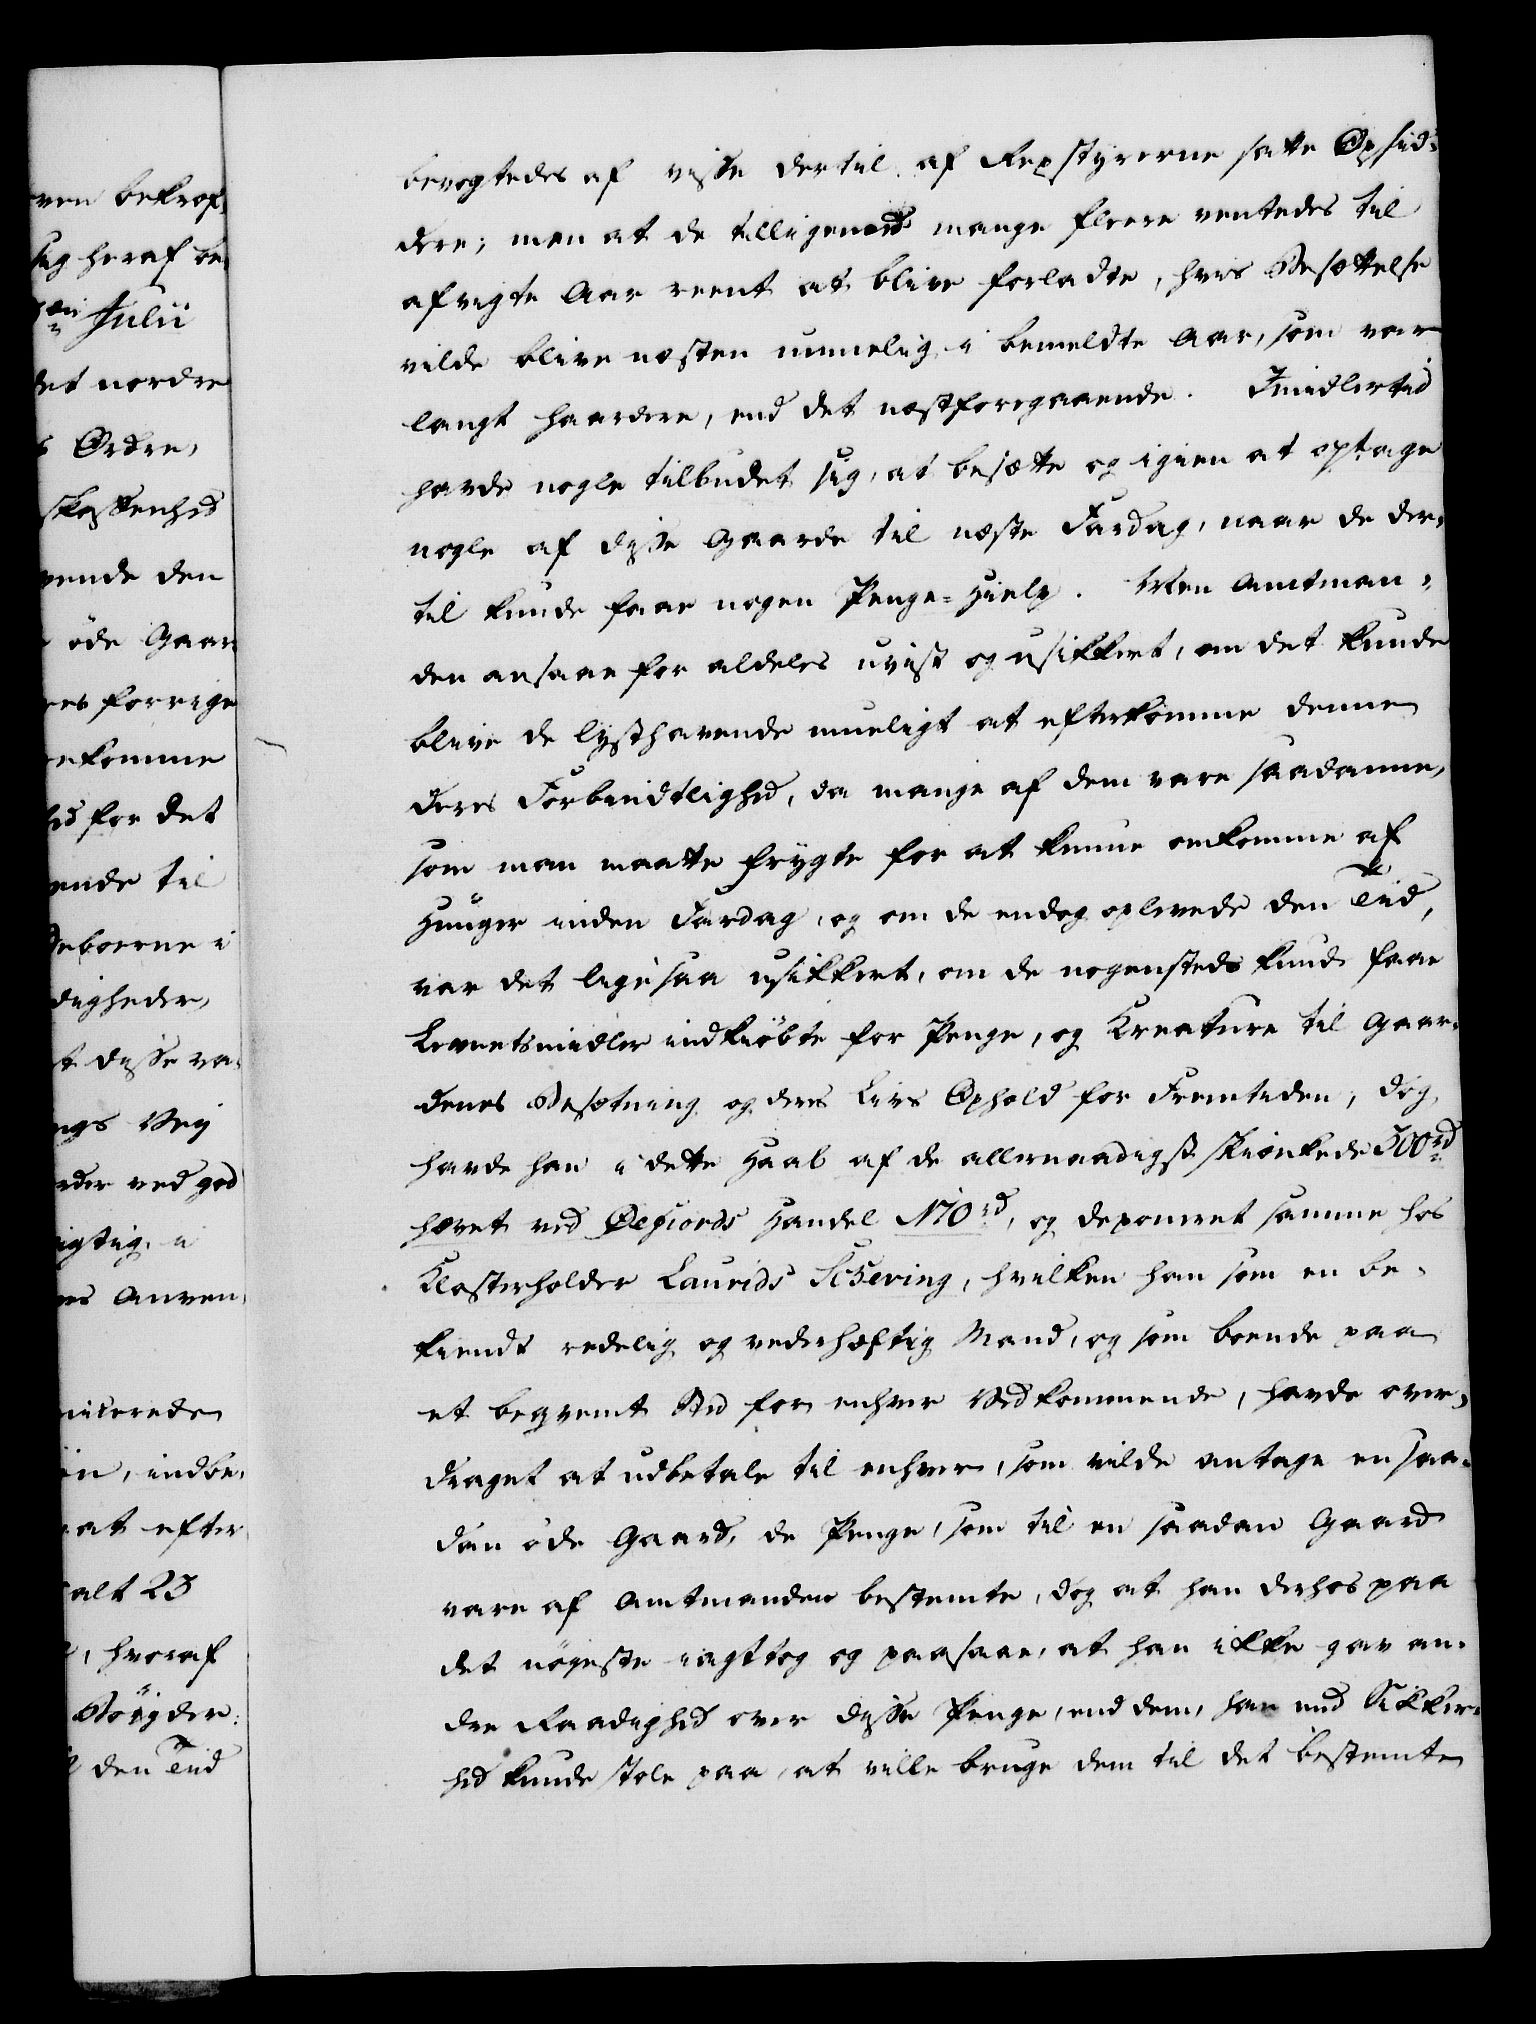 ven bekræf-
sig heraf be-
Julii
det nordre
Ordre,
skaffenhed
vende den
øde Gaar
res forrige
omkomme
hed for det
ende til
deboerne i
digheder,
at disse va-
ngs Vey
rder ved god
igtig, i
es Anven-
icerede
in, indbe-
at efter
alt 23
, hvoraf
Bøygder:
den Tiid
bevogtedes af visse dertil af Repstyrerne satte Opsid-
dere; men at de tilligemed mange fleere ventedes til
afvigte Aar reent at blive forladte, hvis Besættelse
vilde blive næsten umuelig i bemeldte Aar, som var
langt haardere, end det næstforegaaende. Imidlertid
havde nogle tilbudet sig, at besætte og igien at optage
nogle af disse Gaarde til næste Fardag, naar de der-
til kunde faae nogen Penge-Hielp. Men Amtman-
den ansaae for aldeles uvist og usikkert, om det kunde
blive de lysthavende mueligt at efterkomme denne
deres Forbindtlighed, da mange af dem vare saadanne,
som man maatte frygte for at kunne omkomme af
Hunger inden Fardag, og om de endog oplevede den Tiid,
var det ligesaa usikkert, om de nogensteds kunde faae
Levnetsmidler indkiøbte for Penge, og Kreature til Gaar-
denes Besætning og deres Livs Ophold for Fremtiden, dog
havde han i dette Haab af de allernaadigst skiænkede 300 rd
hævet ved Øefiords Handel 170 rd, og deponeret samme hos
Klosterholder Laurids Scheving, hvilken han som en be-
kiendt redelig og vederhæftig Mand, og som boende paa
et beqvemt Sted for enhver Vedkommende, havde over-
draget at udbetale til enhver, som vilde antage en saa-
dan øde Gaard, de Penge, som til en saadan Gaard
vare af Amtmanden bestemte, dog at han derhos paa
det nøyeste iagttog og paasaae, at han ikke gav an-
dre Raadighed over disse Penge, end dem, han med Sikker-
hed kunde stole paa, at ville bruge dem til det bestemte